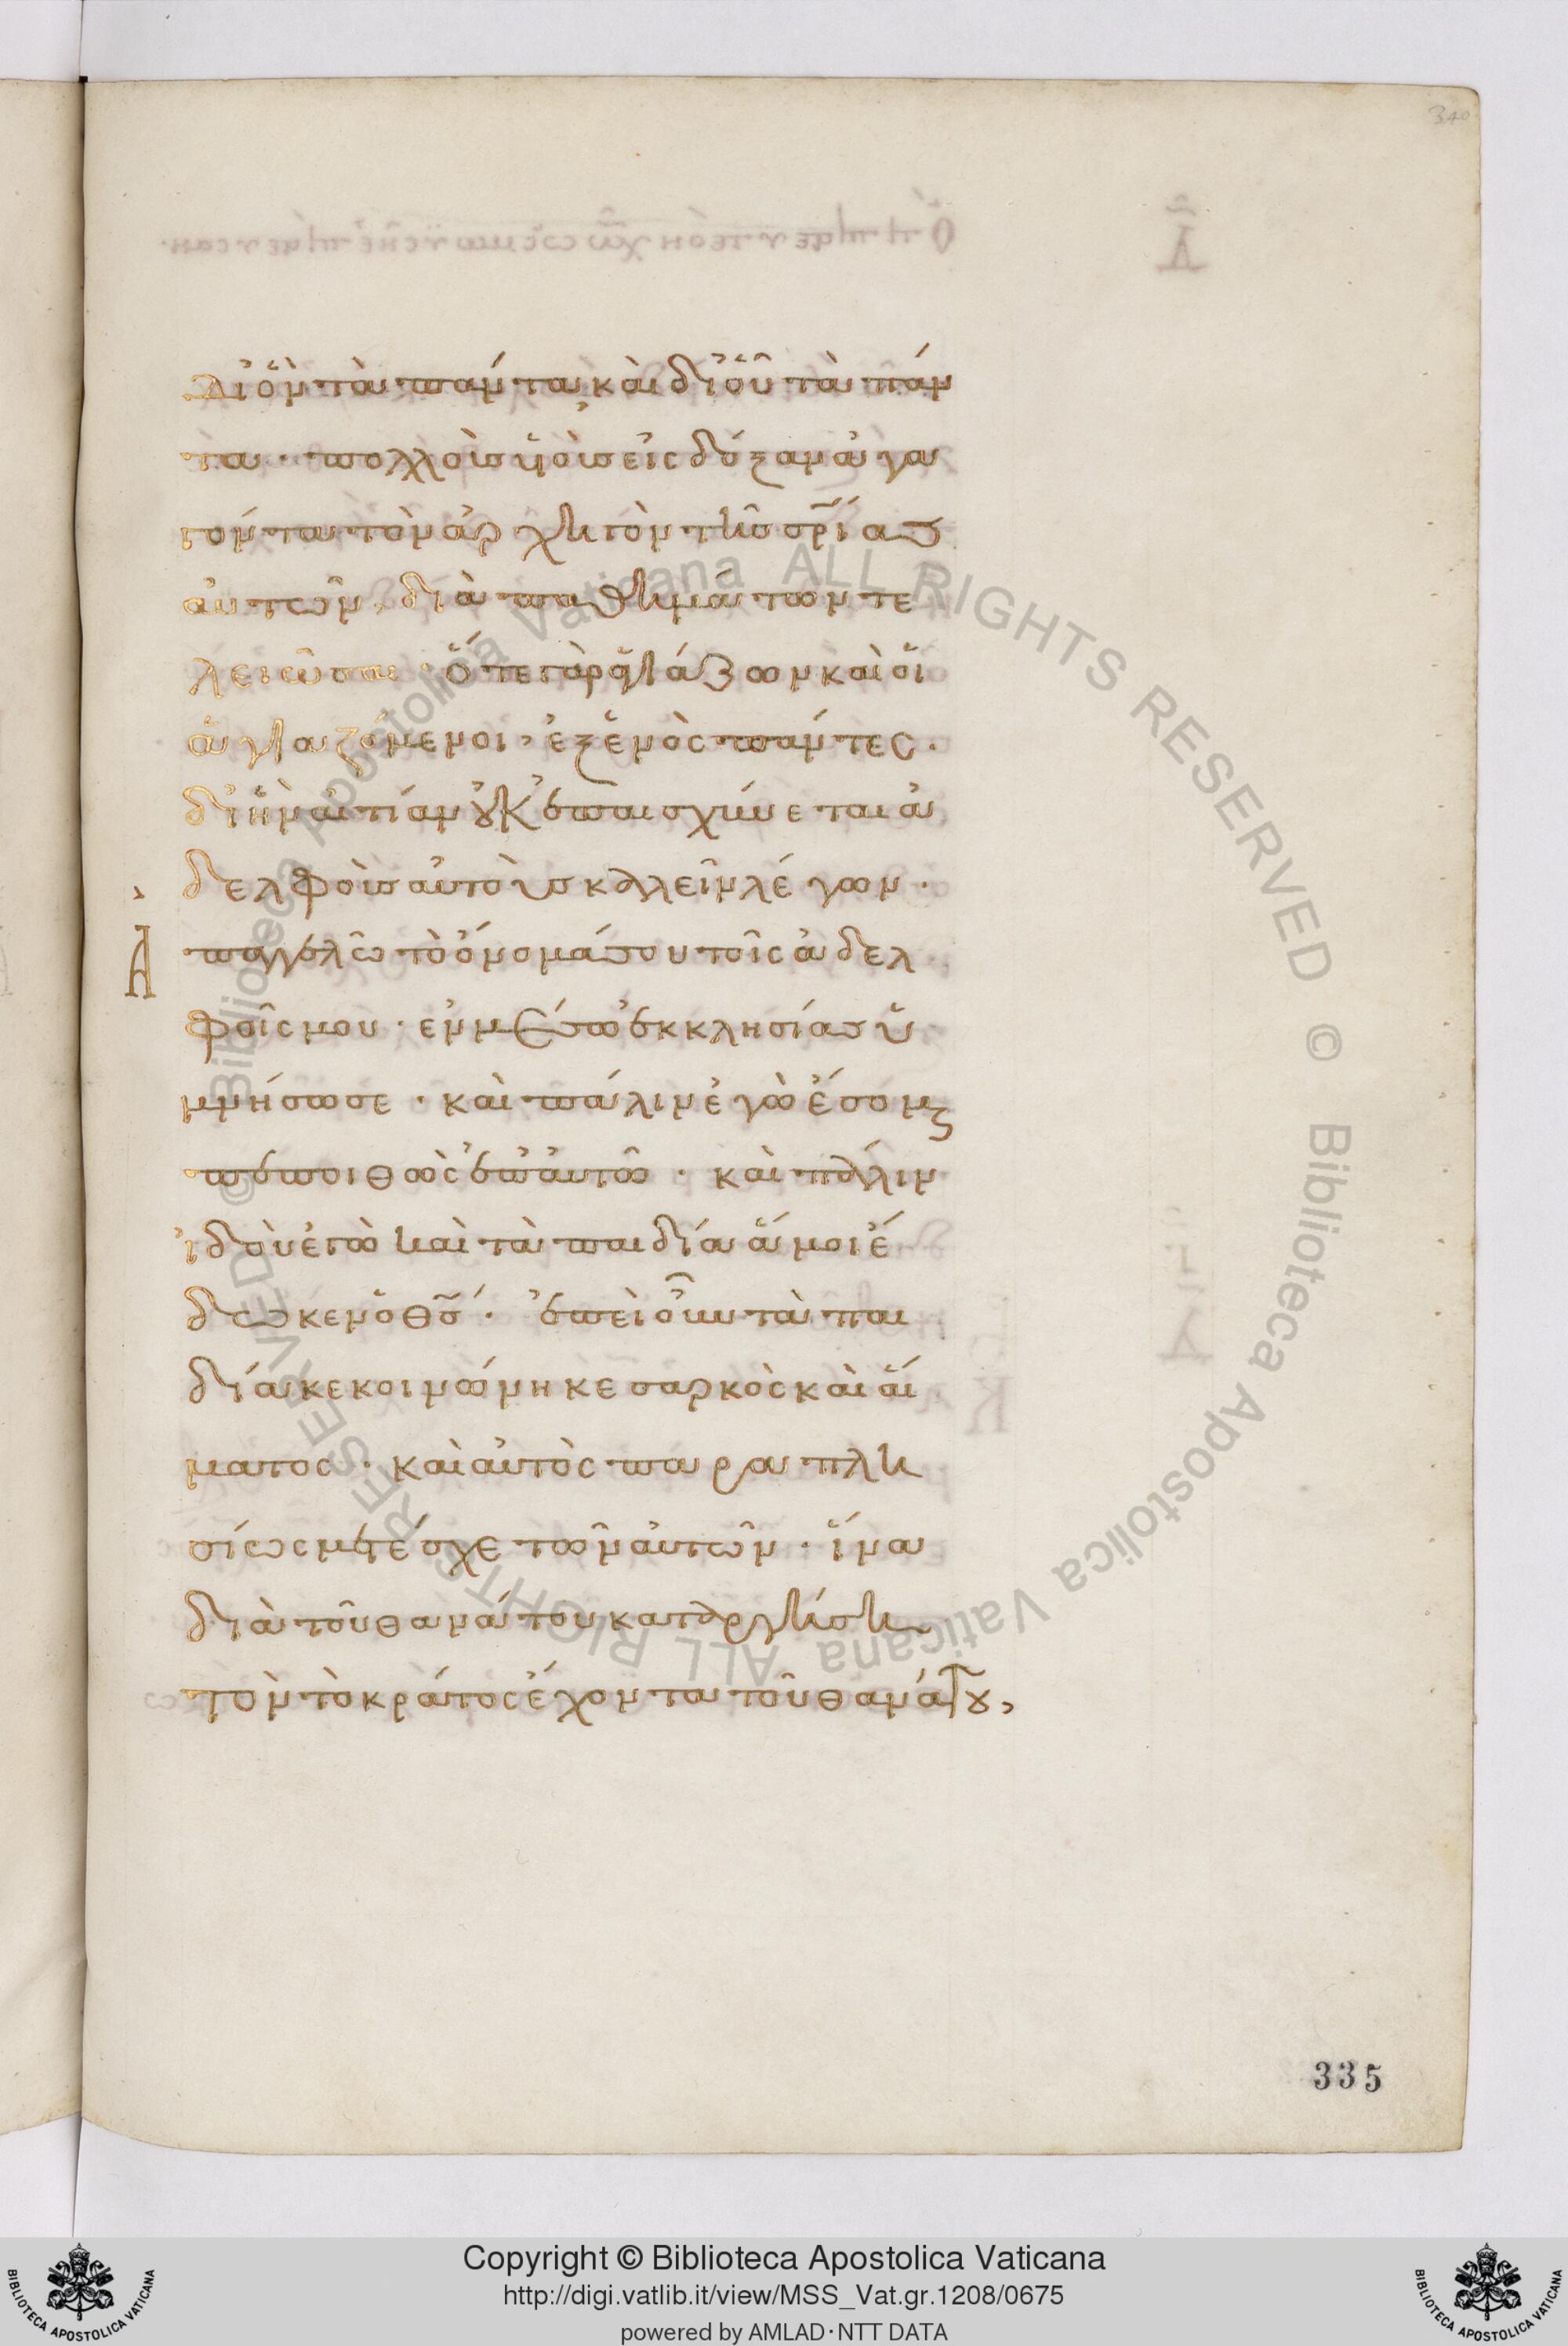 340
δι ὃν τὰ πάντα καὶ δι οὗ τὰ πάν
τα · πολλοὺς υἱοὺς εἰς δόξαν ἀγα
γόντα τὸν ἀρχηγὸν τῆς σρ̅ίας
αὐτῶν, διὰ παθημάτων τε
λειῶσαι · ὅ τε γὰρ ἁγιάζων καὶ οἱ
ἁγιαζόμενοι, ἐξ ἑνὸς πάντες ·
δι ἣν αἰτίαν οὐκ ἐπαισχύνεται ἀ
δελφοὺς αὐτοὺς καλεῖν λέγων ·
Ἀπαγγελῶ τὸ ὄνομά σου τοῖς ἀδελ
φοῖς μου · ἐν μέσω ἐκκλησίας ὑ
μνήσω σε · καὶ πάλιν ἐγὼ ἔσομαι
πεποιθὼς ἐπ αὐτῶ · καὶ πάλιν
ἰδοὺ ἐγὼ καὶ τὰ παιδία ἅ μοι ἔ
δωκεν ὁ θς̅ · ἐπεὶ οὖν τὰ παι
δία κεκοινώνηκε σαρκὸς καὶ αἵ
ματος · καὶ αὐτὸς παραπλη
σίως μετέσχε τῶν αὐτῶν · ἵνα
διὰ τοῦ θανάτου καταργήση
τὸν τὸ κράτος ἔχοντα τοῦ θανάτου,
335
© Biblioteca Apostolica Vaticana ALL RIGHTS RESERVED © Biblioteca Apostolica Vaticana ALL RIGHTS RESERVED
Copyright © Biblioteca Apostolica Vaticana
http://digi.vatlib.it/view/MSS_Vat.gr.1208/0675
powered by AMLAD·NTT DATA
BIBLIOTECA APOSTOLICA VATICANA
BIBLIOTECA APOSTOLICA VATICANA